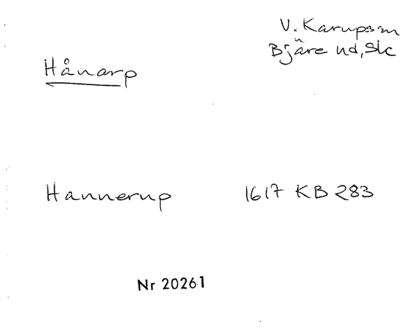 V. Karupsn
Bjäre hd, Slc
Hånarp
Hannerup 1617 KB 283
Nr 20261